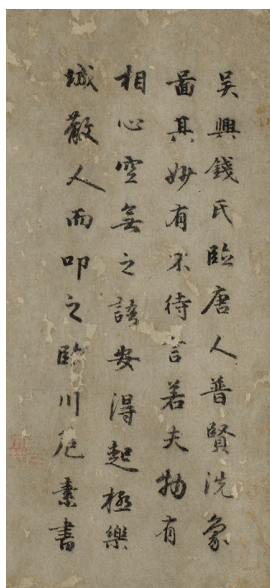 吳興錢氏臨唐人普賢洗象
啚其妙有不待言若夫物有
相心空無之語安得起極樂
城散人而叩之臨川危素書